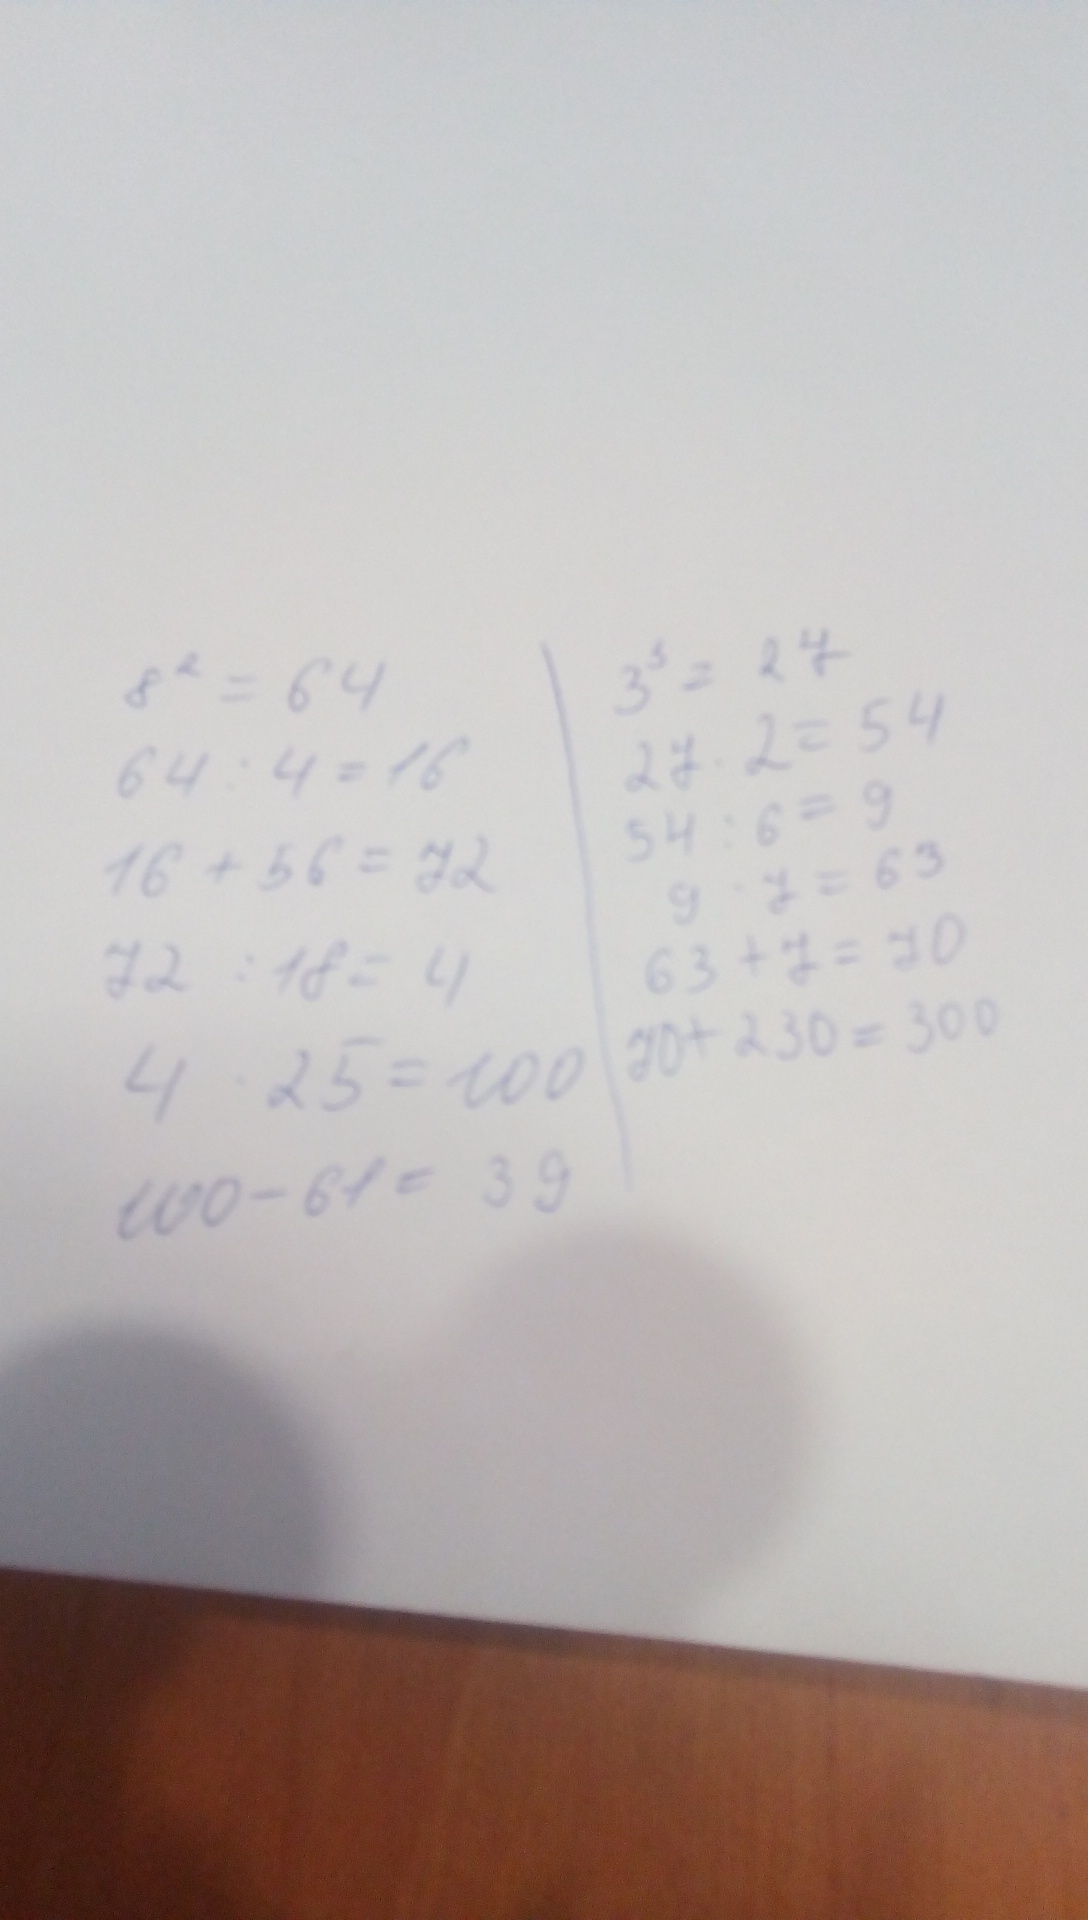 8² = 64
64 : 4 = 16
16 + 56 = 72
72 : 18 = 4
4 · 25 = 100
100 - 61 = 39
3³ = 27
27 · 2 = 54
54 : 6 = 9
9 · 7 = 63
63 + 7 = 70
70 + 230 = 300